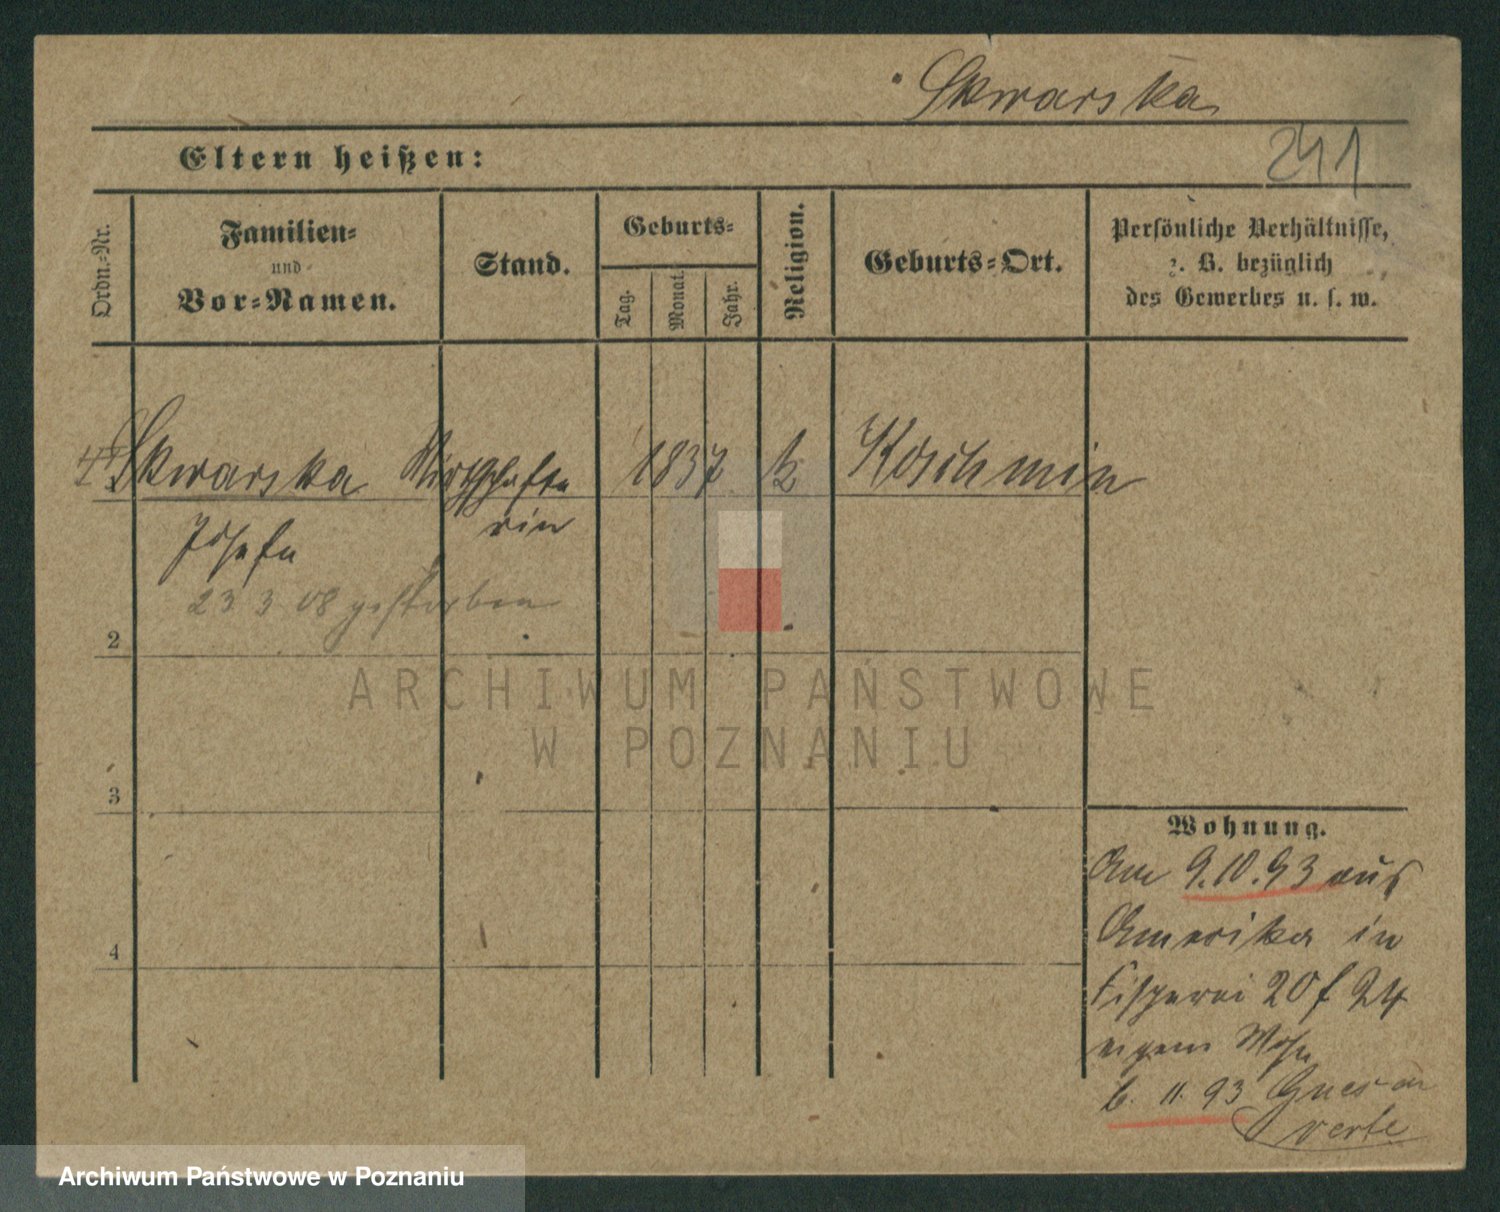 Skwarska
Eltern heißen:
241
Ordn.-Nr.
Familien-
und
Vor-Namen.
Stand.
Geburts-
Tag.
Monat.
Jahr.
Religion.
Geburts-Ort.
Persönliche Verhältnisse,
z. B. bezüglich
des Gewerbes u. s. w.
Skwarska Wirthschafte 1837 k Koschmin
Josefa rin
23 3 08 gestorben
2
ARCHIWUM PAŃSTWOWE
W POZNANIU
3
4
Wohnung.
Am 9.10.93 aus
Amerika in
Fischerei 20 f 24
eigene Wohn
6. 11. 93 Gnesen
verte
Archiwum Państwowe w Poznaniu